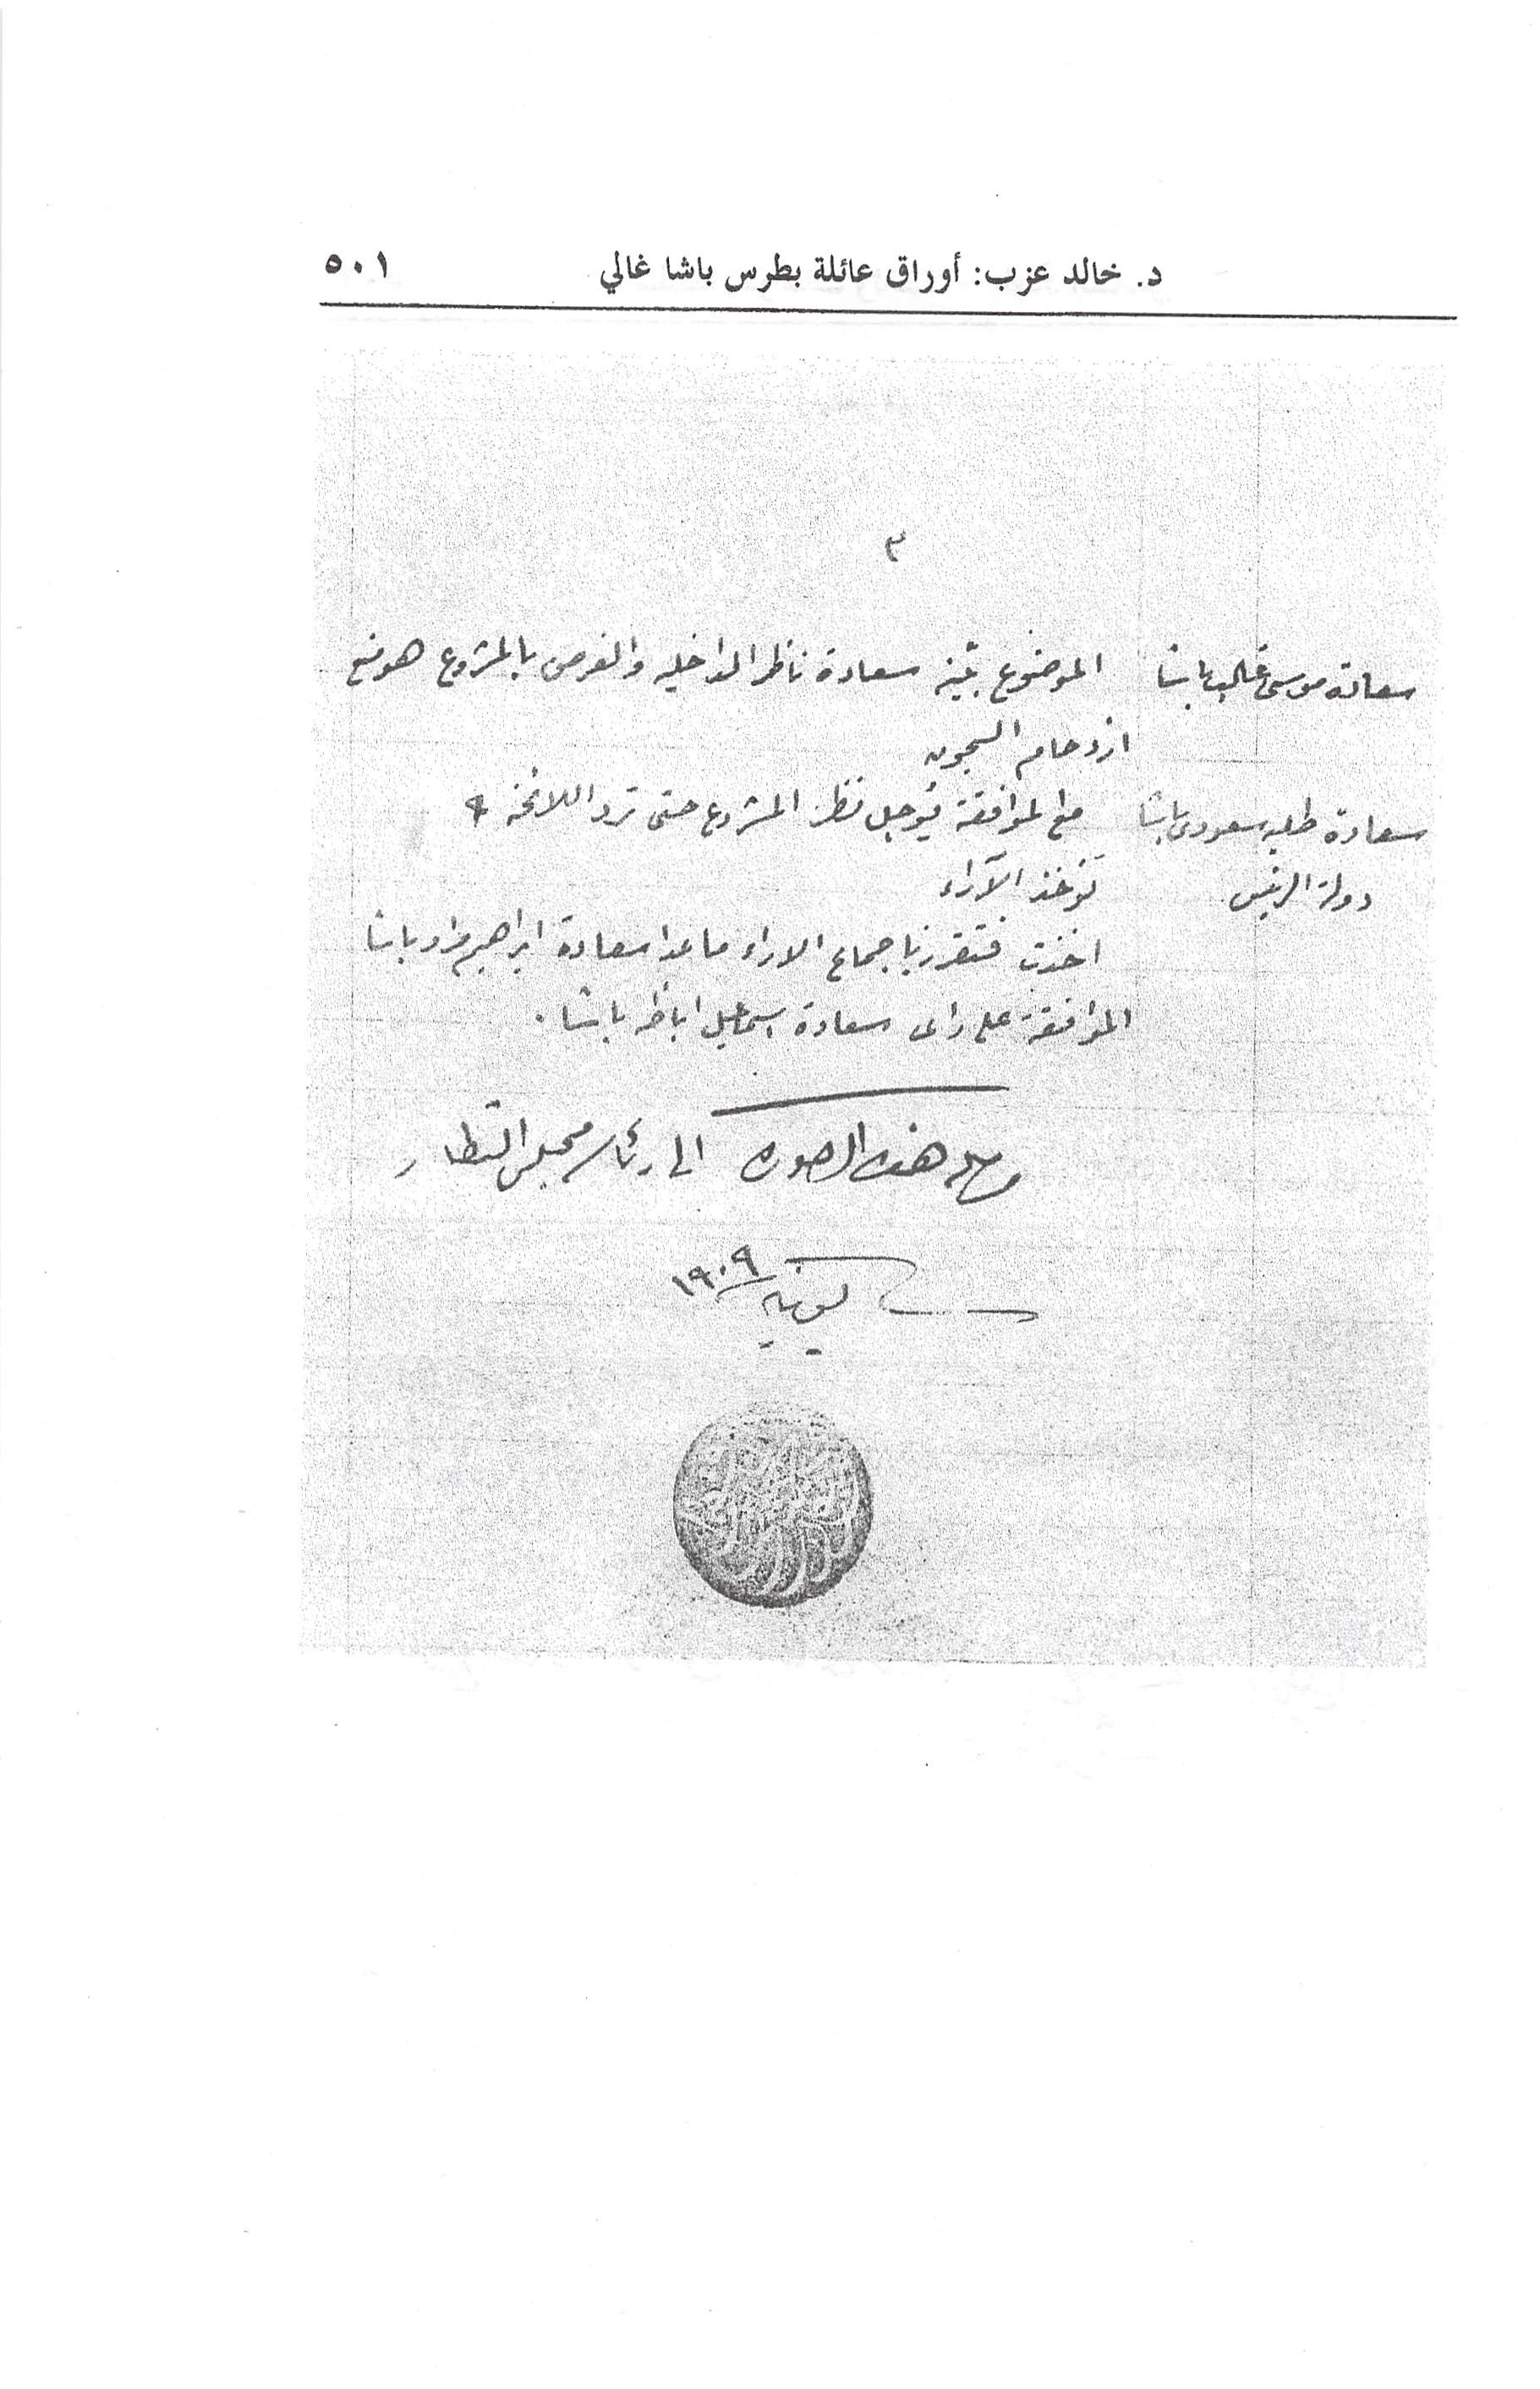 د. خالد عزب: أوراق عائلة بطرس باشا غالي ٥٠١
٣
سعادة موسى غالب باشا الموضوع بينه سعادة ناظر الداخليه والغرض بالمشروع هو منع
ازدحام السجون
سعادة طلبه سعودى باشا مع الموافقة يؤجل نظر المشروع حتى ترد اللائحة
دولة الرئيس تؤخذ الآراء
اخذت فتقرر باجماع الاراء ما عدا سعادة ابراهيم مراد باشا
الموافقة على راى سعادة اسماعيل اباظه باشا .
هذه الصوره الى رئاسة مجلس النظار
يونيه ١٩٠٩